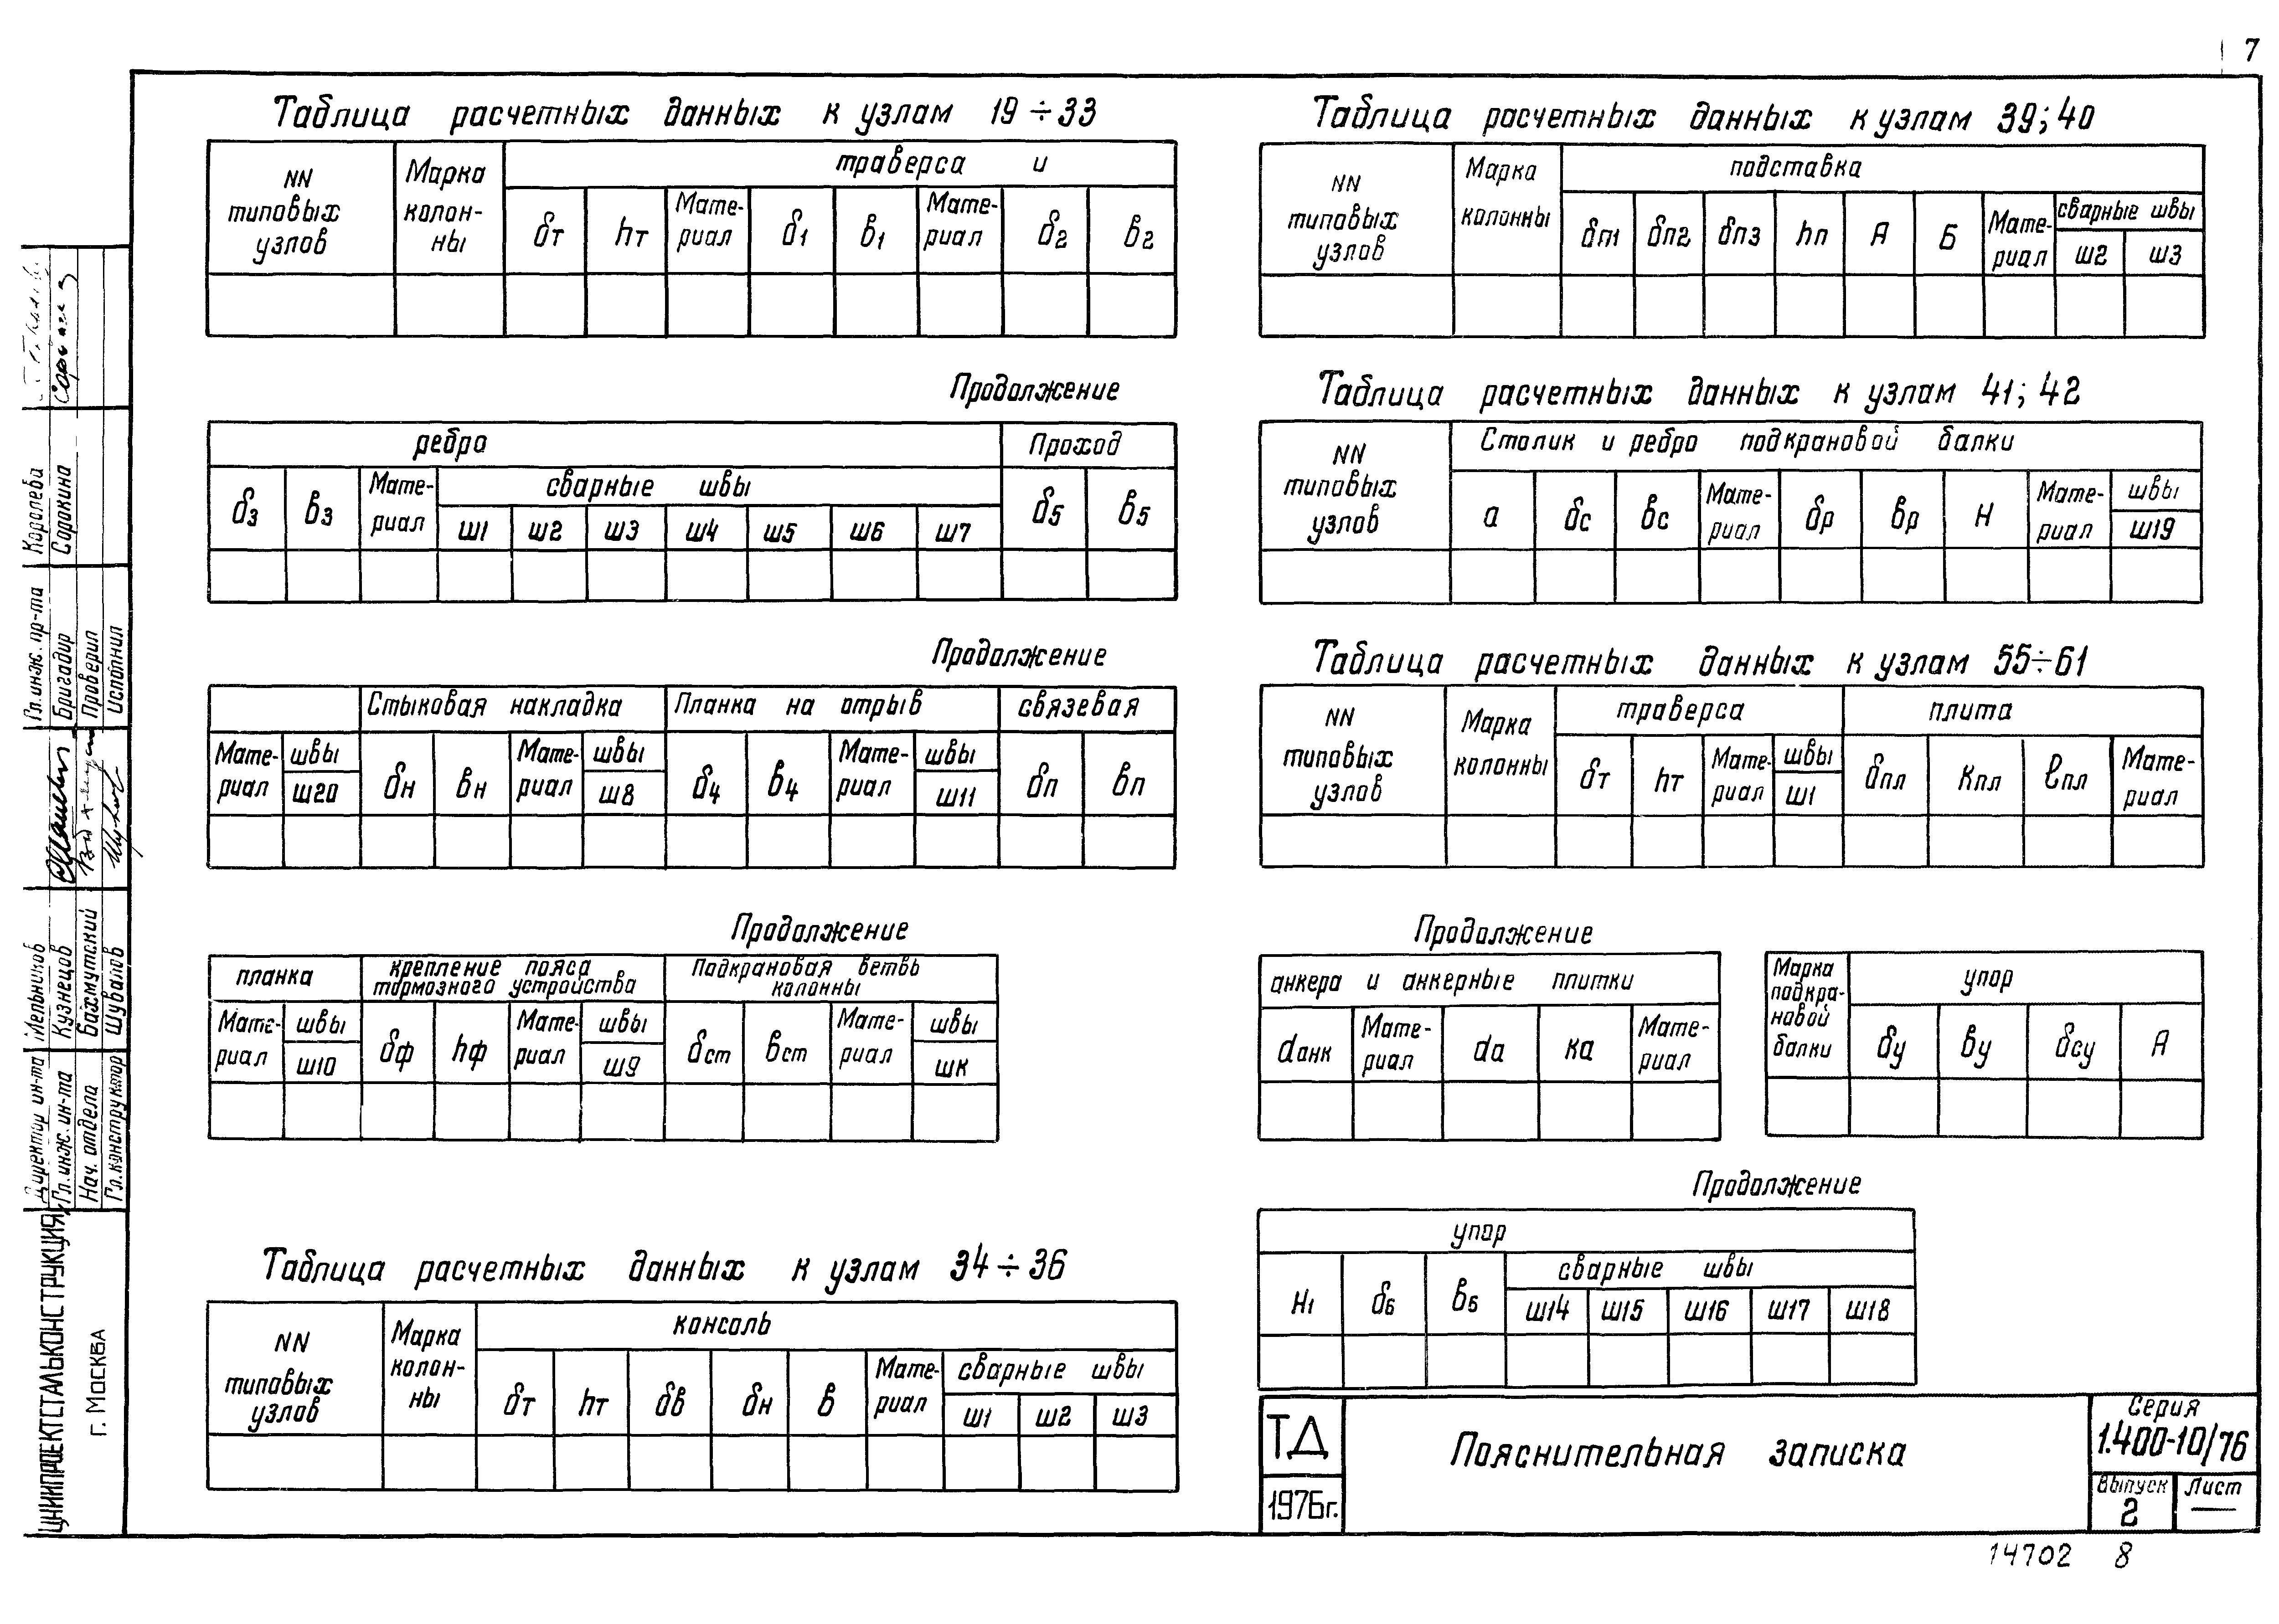 7
Таблица расчетных данных к узлам 19÷33
NN типовых узлов
Марка колон-ны
траверса и
δт hт Мате-риал δ1 в1 Мате-риал δ2 в2
Продолжение
ребро Проход
δ3 в3 Мате-риал сварные швы δ5 в5
ш1 ш2 ш3 ш4 ш5 ш6 ш7
Продолжение
Стыковая накладка Планка на отрыв связевая
Мате-риал швы δн вн Мате-риал швы δ4 в4 Мате-риал швы δп вп
ш20 ш8 ш11
Продолжение
планка крепление пояса тормозного устройства Подкрановая ветвь колонны
Мате-риал швы δф hф Мате-риал швы δст вст Мате-риал швы
ш10 ш9 шк
Таблица расчетных данных к узлам 34÷36
NN типовых узлов
Марка колон-ны
консоль
δт hт δв δн в Мате-риал сварные швы
ш1 ш2 ш3
Таблица расчетных данных к узлам 39; 40
NN типовых узлов
Марка колонны
подставка
δп1 δп2 δп3 hп А Б Мате-риал сварные швы
ш2 ш3
Таблица расчетных данных к узлам 41; 42
NN типовых узлов
Столик и ребро подкрановой балки
а δс вс Мате-риал δр вр Н Мате-риал швы
ш19
Таблица расчетных данных к узлам 55÷61
NN типовых узлов
Марка колонны
траверса плита
δт hт Мате-риал швы δпл Кпл ℓпл Мате-риал
ш1
Продолжение
анкера и анкерные плитки
dанк Мате-риал da Ка Мате-риал
Марка подкра-новой балки
упор
δу ву δсу А
Продолжение
упор
Н1 δ6 в6 сварные швы
ш14 ш15 ш16 ш17 ш18
ТД
1976г.
Пояснительная записка
Серия
1.400-10/76
Выпуск
2
Лист
—
14702 8
Гл. инж. пр-та Королева
Бригадир Сорокина
Проверил
Исполнил
Директор ин-та Мельников
Гл. инж. ин-та Кузнецов
Нач. отдела Бахмутский
Гл. конструктор Шувалов
ЦНИИПРОЕКТСТАЛЬКОНСТРУКЦИЯ
г. Москва